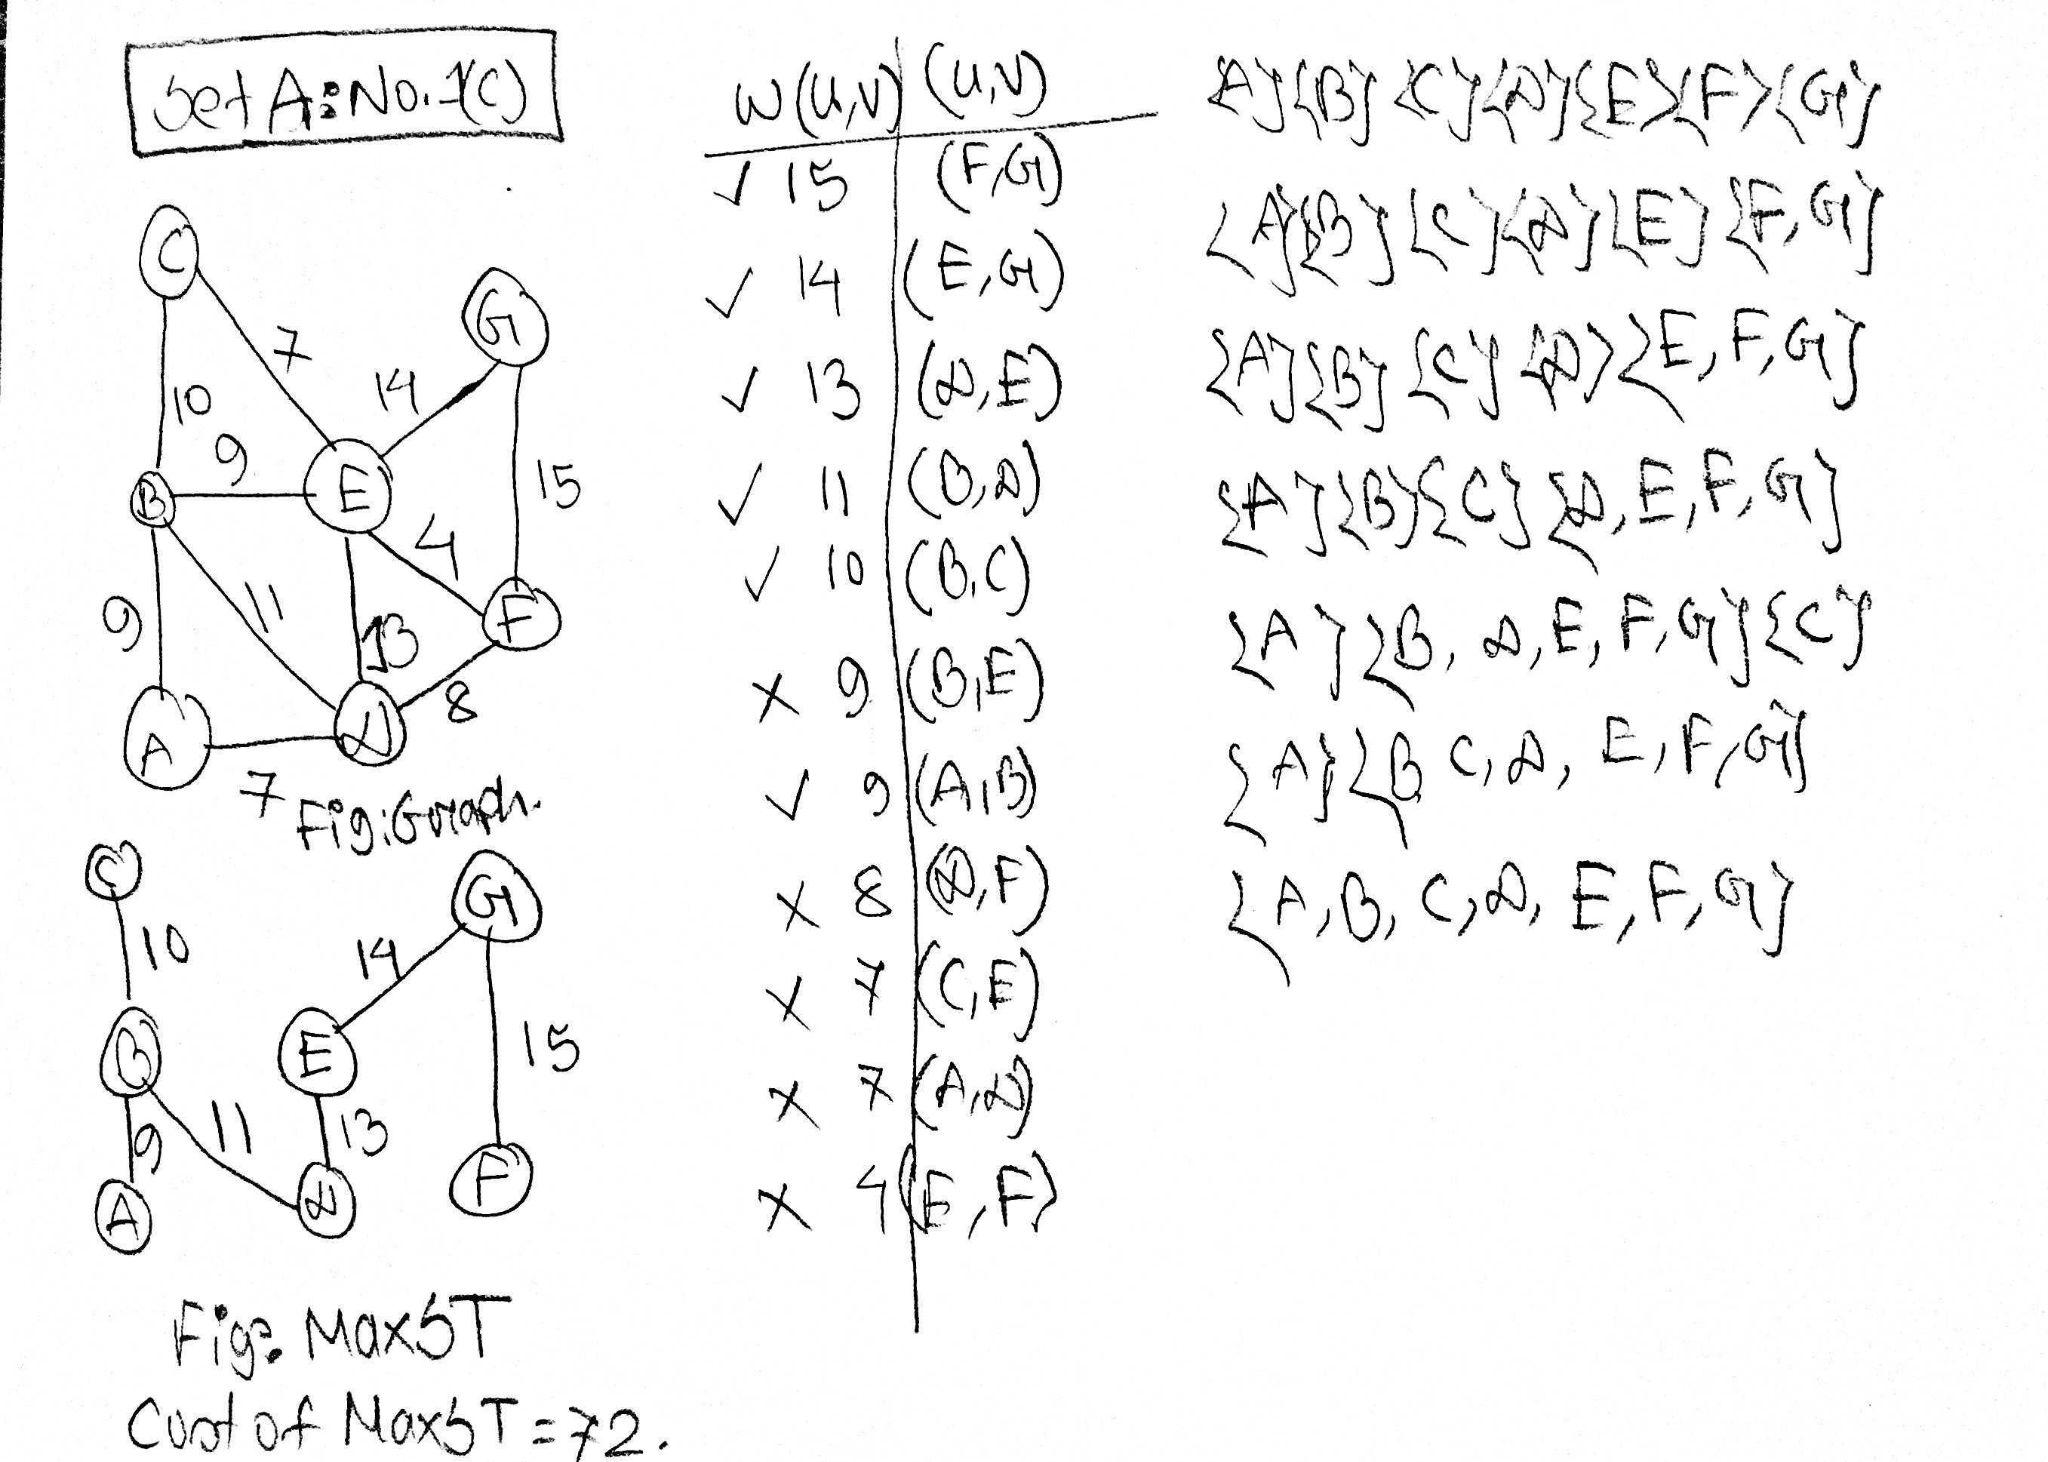 Set A: No. 1(C)
C
7
G
14
10
9
B
E
15
4
11
9
13
F
8
A
D
7
Fig: Graph.
C
G
10
14
B
E
15
11
13
9
A
D
F
Fig: MaxST
Cost of MaxST = 72.
W(u,v) (u,v)
✓ 15 (F,G)
✓ 14 (E,G)
✓ 13 (D,E)
✓ 11 (B,D)
✓ 10 (B,C)
x 9 (B,E)
✓ 9 (A,B)
x 8 (D,F)
x 7 (C,E)
x 7 (A,D)
x 4 (E,F)
{A}{B}{C}{D}{E}{F}{G}
{A}{B}{C}{D}{E}{F,G}
{A}{B}{C}{D}{E,F,G}
{A}{B}{C}{D,E,F,G}
{A}{B,D,E,F,G}{C}
{A}{B C,D,E,F,G}
{A,B,C,D,E,F,G}